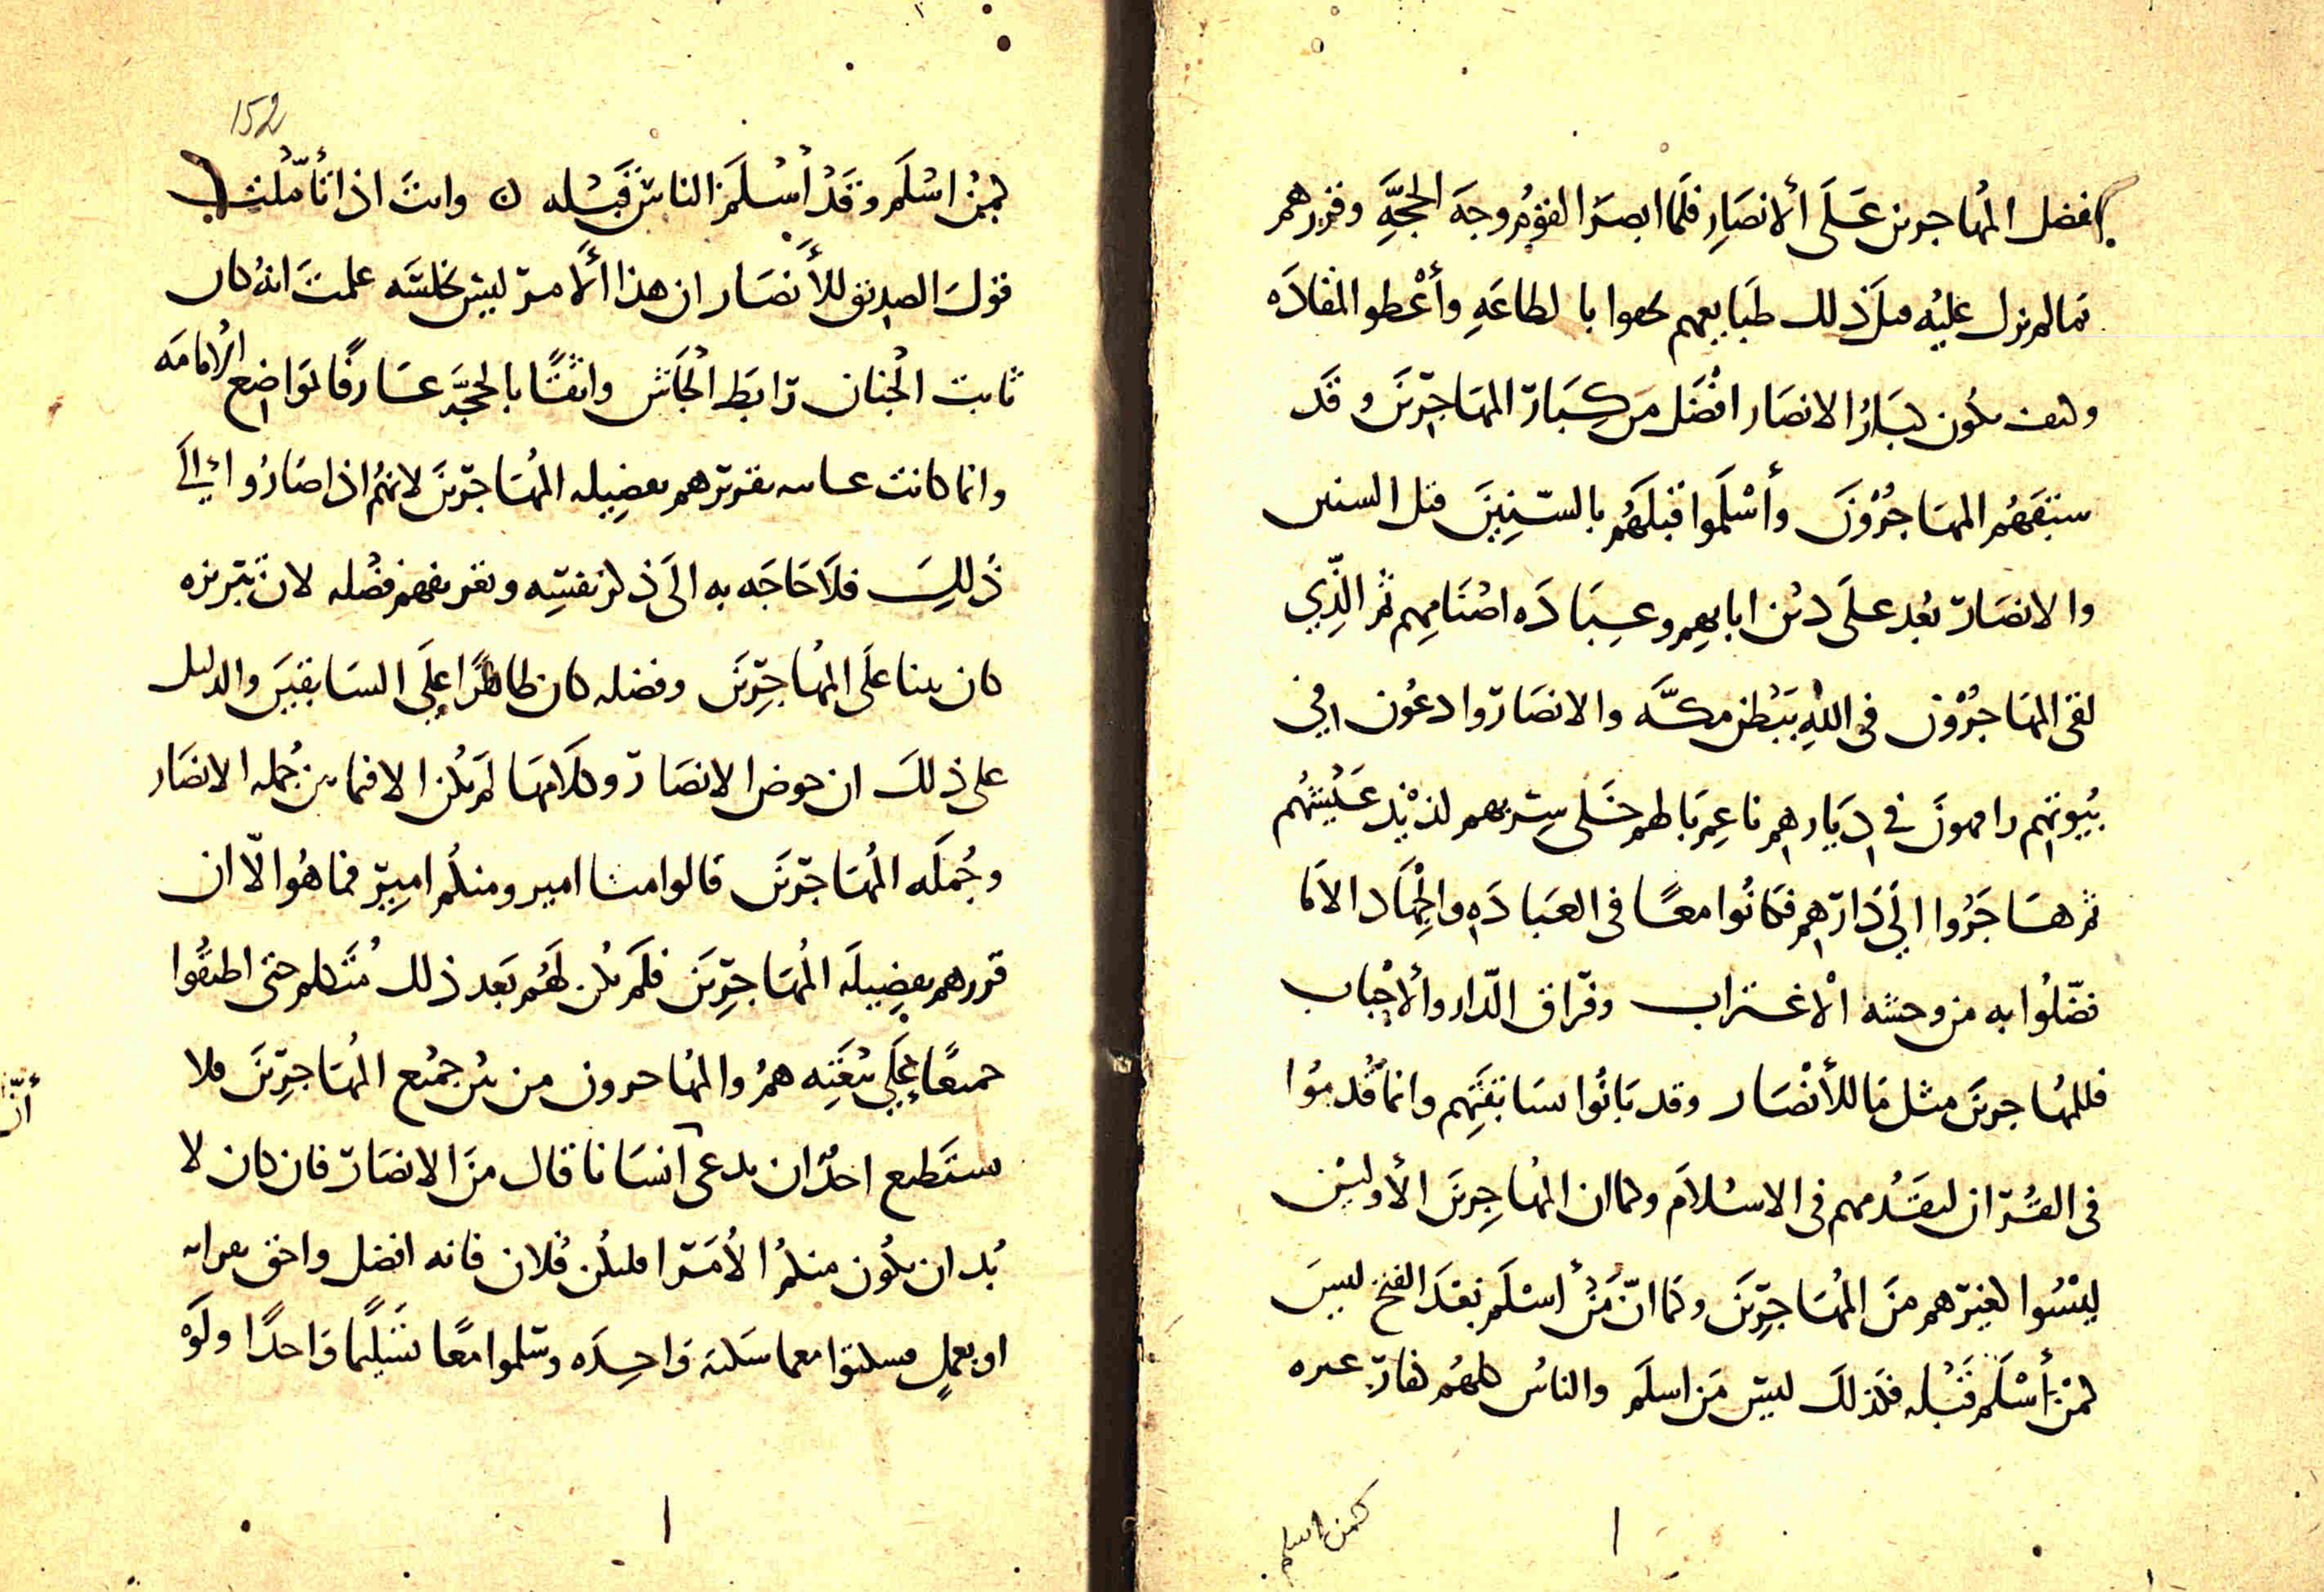 بفضل المهاجرين على الأنصار فلما ابصر القوم وجه الحجة وقررهم
بما لم يزل عليه قبل ذلك طبايعهم بالطاعة وأعطوا المقادة
وكيف يكون كبار الانصار افضل من كبار المهاجرين وقد
سبقهم المهاجرون وأسلموا قبلهم بالسنين قبل السنين
والانصار بعد على دين ابايهم وعبادة اصنامهم ثم الذي
لقي المهاجرون في الله ببطن مكة والانصار وادعون في
بيوتهم رافهون في ديارهم ناعم بالهم خلي سربهم لذيذ عيشهم
ثم هاجروا الي دارهم فكانوا معا في العبادة والجهاد الا ما
فضلوا به من وحشة الاغتراب وفراق الدار والأحباب
فللمهاجرين مثل ما للأنصار وقد بانوا بسابقتهم وانما قدموا
في القران لتقدمهم في الاسلام وكما ان المهاجرين الأولين
ليسوا كغيرهم من المهاجرين وكما انّ من أسلم بعد الفتح ليس
كمن أسلم قبله فكذلك ليس من اسلم والناس كلهم كفار غيره
كمن اسلم
152
كمن اسلم وقد أسلم الناس قبله ن وانت اذا تأملت
قول الصديق للأنصار ان هذا الأمر ليس بخلسة علمت انه كان
ثابت الجنان رابط الجأش واثقًا بالحجة عارفًا بمواضع الامامة
وانما كانت غايته تقريرهم بفضيلة المهاجرين لانهم اذا صاروا الى
ذلك فلا حاجة به الى ذكر نفسه وتعريفهم فضله لان تبريزه
كان بينا على المهاجرين وفضله كان ظاهرًا على السابقين والدليل
على ذلك ان خوض الانصار وكلامها لم يكن الا فيما بين جملة الانصار
وجملة المهاجرين قالوا منا امير ومنكم امير فما هو الّا ان
قررهم بفضيلة المهاجرين فلم يكن لهم بعد ذلك متكلم حتى اطبقوا
جميعًا على بيعته هم والمهاجرون من بين جميع المهاجرين فلا
أنّ
يستطيع احد ان يدعي انسانا قال من الانصار فان كان لا
بد ان يكون منكم الأمرا فليكن فلان فانه افضل واحق بقرابة
او بعمل فسكتوا معا سكتة واحدة وسلموا معًا تسليما واحدًا ولو